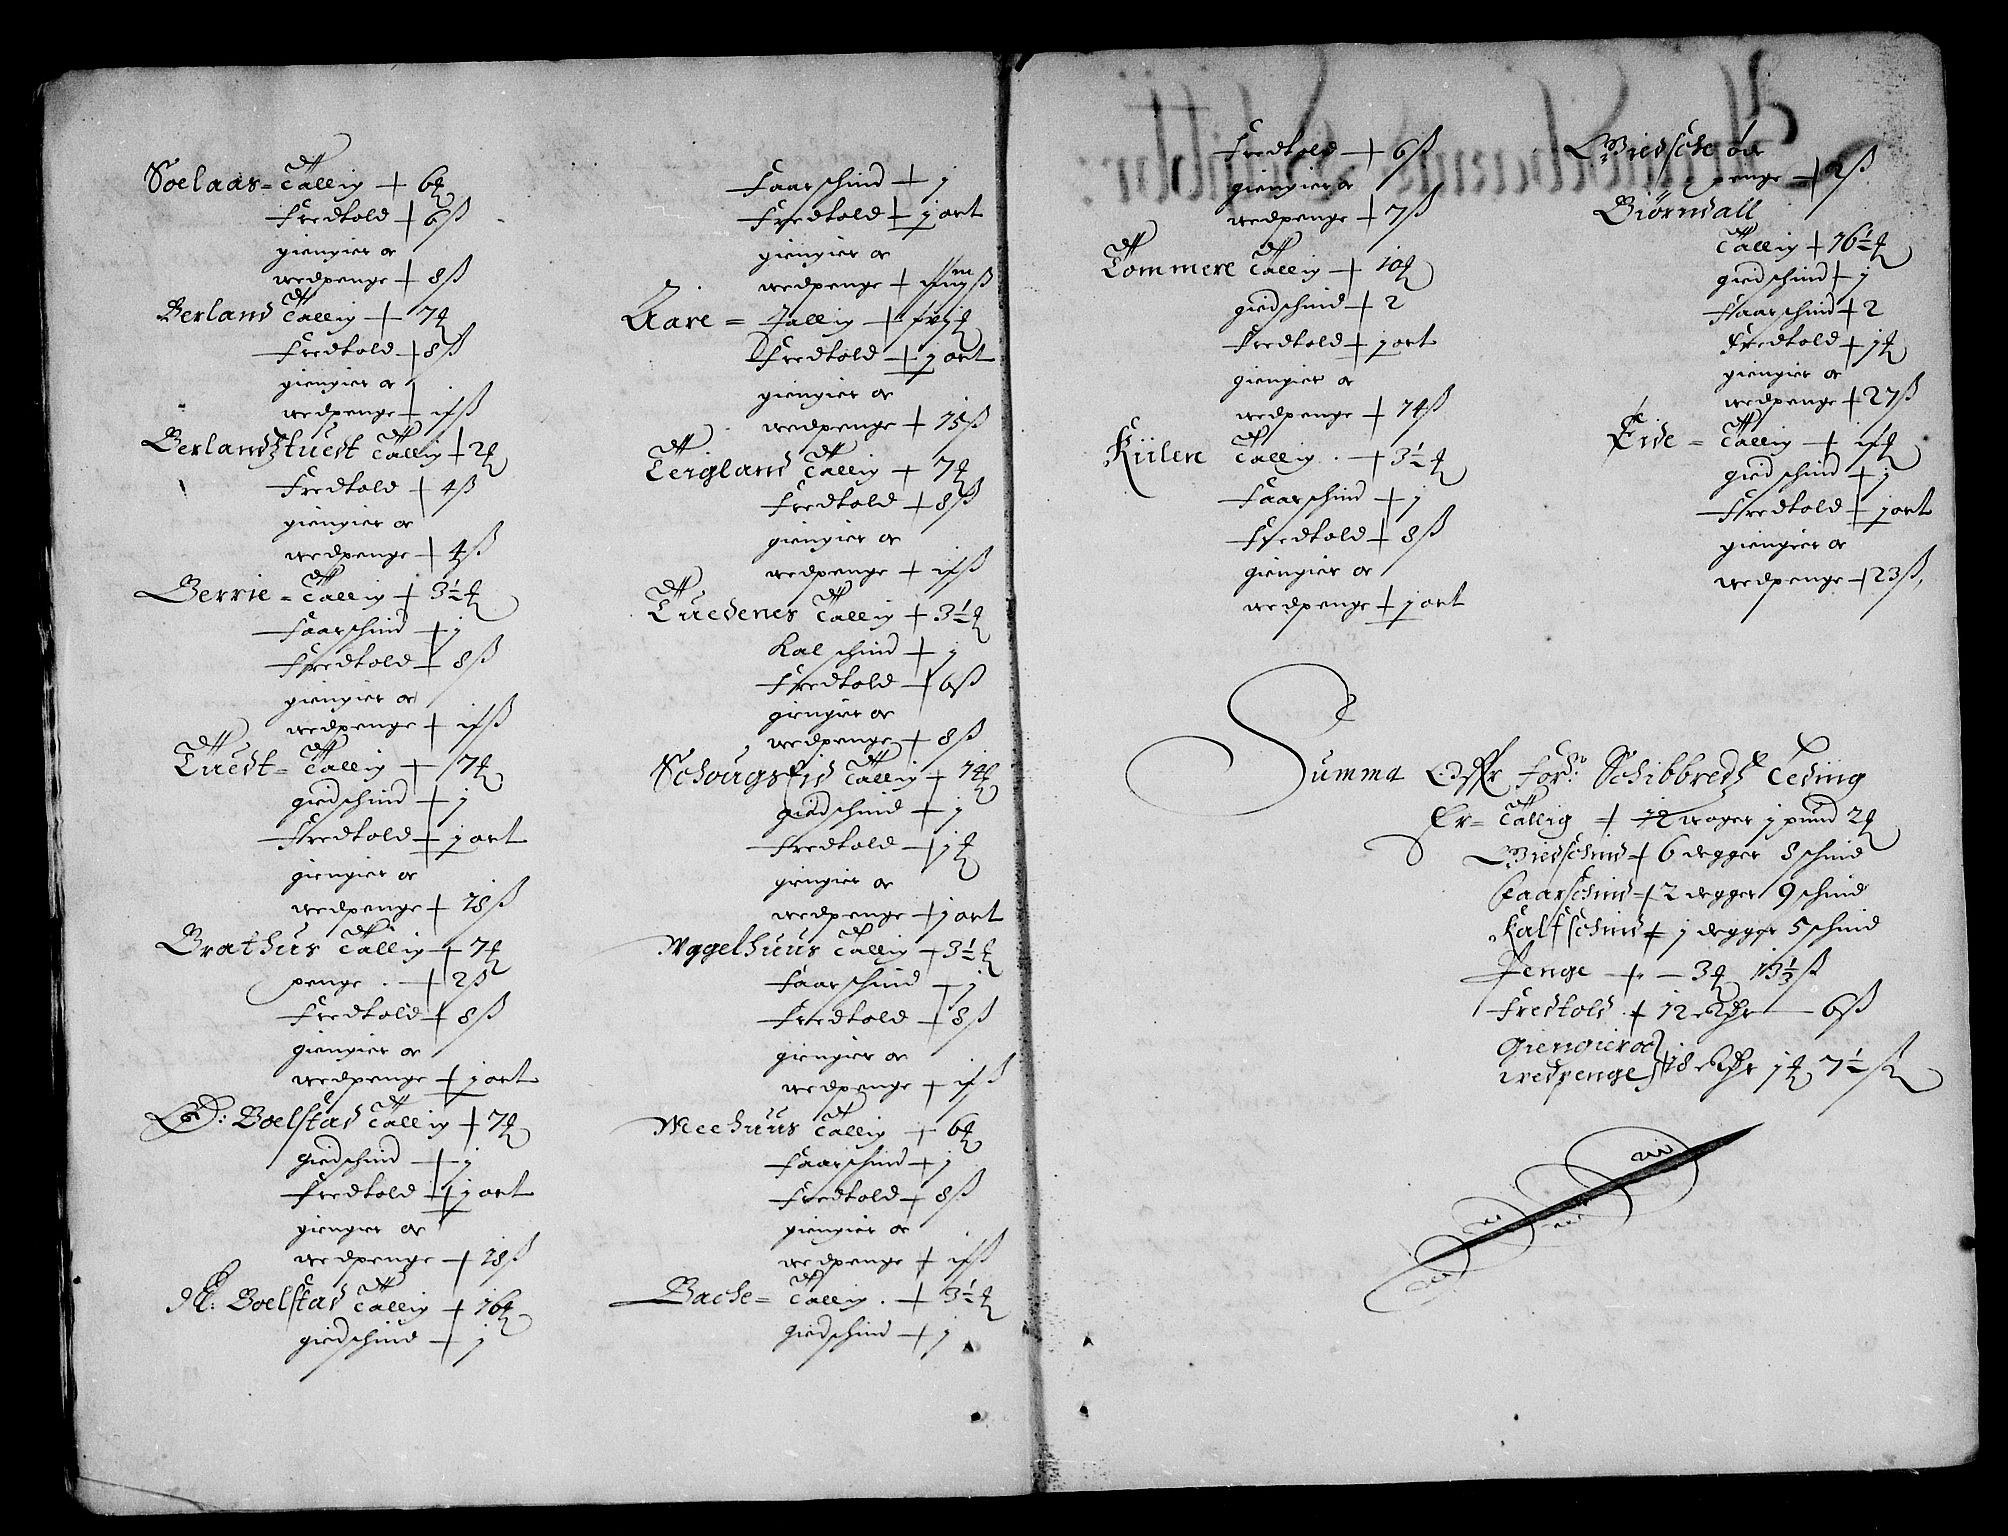 Soelaas = Tallig + 6
Fredtold + 6 ß
giengier oc
wedpenge + 8 ß
Berland Tallig + 7
Fredtold + 8 ß
giengier oc
wedpenge + if ß
Berlandztuedt Tallig + 2
Fredtold + 4 ß
giengier oc
wedpenge + 4 ß
Berrie = Tallig + 3½
Faarschind + j
Fredtold + 8 ß
giengier oc
wedpenge + if ß
Tuedt = Tallig + 7
giedschind + j
Fredtold + j ort
giengier oc
wedpenge + 18 ß
Brathus Tallig + 7
penge + 2 ß
Fredtold + 8 ß
giengier oc
wedpenge + j ort
Boelstad Tallig + 7
giedschind + j
Fredtold + j ort
giengier oc
wedpenge + 18 ß
Boelstad Tallig + 16
giedschind + j
Faarschind + j
Fredtold + j ort
giengier oc
wedpenge +
Aare = Tallig +
Fredtold + j ort
giengier oc
wedpenge + 15 ß
Teigland Tallig + 7
Fredtold + 8 ß
giengier oc
wedpenge + if ß
Tuedenes Tallig + 3½
Kalschind + j
Fredtold + 6 ß
giengier oc
wedpenge + 8 ß
Schougsfid Tallig + 14
giedschind + j
Fredtold + j
giengier oc
wedpenge + j ort
Wggelhuus Tallig + 3½
Faarschind + j
Fredtold + 8 ß
giengier oc
wedpenge + if ß
Meehuus Tallig + 6
Faarschind + j
Fredtold + 8 ß
giengier oc
wedpenge + if ß
Bache = Tallig + 3½
giedschind + j
Fredtold + 6 ß
giengier oc
wedpenge + 7 ß
Tommere Tallig + 10
giedschind + 2
Fredtold + j ort
giengier oc
wedpenge + 14 ß
Kiilene Tallig + 3½
Faarschind + j
Fredtold + 8 ß
giengier oc
wedpenge + j ort
Giedsche öer
penge + 2 ß
Biörndall
Tallig + 16½
giedschind + j
Faarschind + 2
Fredtold + j
giengier oc
wedpenge + 27 ß
Eide = Tallig + if
giedschind + j
Fredtold + j ort
giengier oc
wedpenge + 23 ß
Summa Offr for: Schibbredz Leding
Er = Tallig + 12 woger j pund 2
Giedschind + 6 degger 8 schind
Faarschind + 2 degger 9 schind
Kalfschind + j degger 5 schind
Penge + 3 13½ ß
Fredtold + 12 Rdr 6 ß
Giengier oc
wedpenge + 18 Rdr j 7½ ß